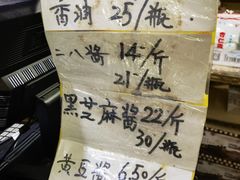 香油 25/瓶
二八酱 14/斤
21/瓶
黑芝麻酱 22/斤
30/瓶
黄豆酱 6.50/斤